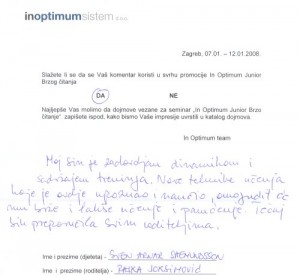 inoptimumsistem d.o.o.
Zagreb, 07.01. – 12.01.2008.
Slažete li se da se Vaš komentar koristi u svrhu promocije In Optimum Junior
Brzog čitanja
DA NE
Najljepše Vas molimo da dojmove vezane za seminar „In Optimum Junior Brzo
čitanje" zapišete ispod, kako bismo Vaše impresije uvrstili u katalog dojmova.
In Optimum team
Moj sin je zadovoljan dinamikom i
sadržajem treninga. Nove tehnike učenja
koje je ovdje upoznao i naučio, omogućit će
mu brže i lakše učenje i pamćenje. Tečaj
bih preporučila svim roditeljima.
Ime i prezime (djeteta) - SVEN
Ime i prezime (roditelja) - JOKSIMOVIĆ